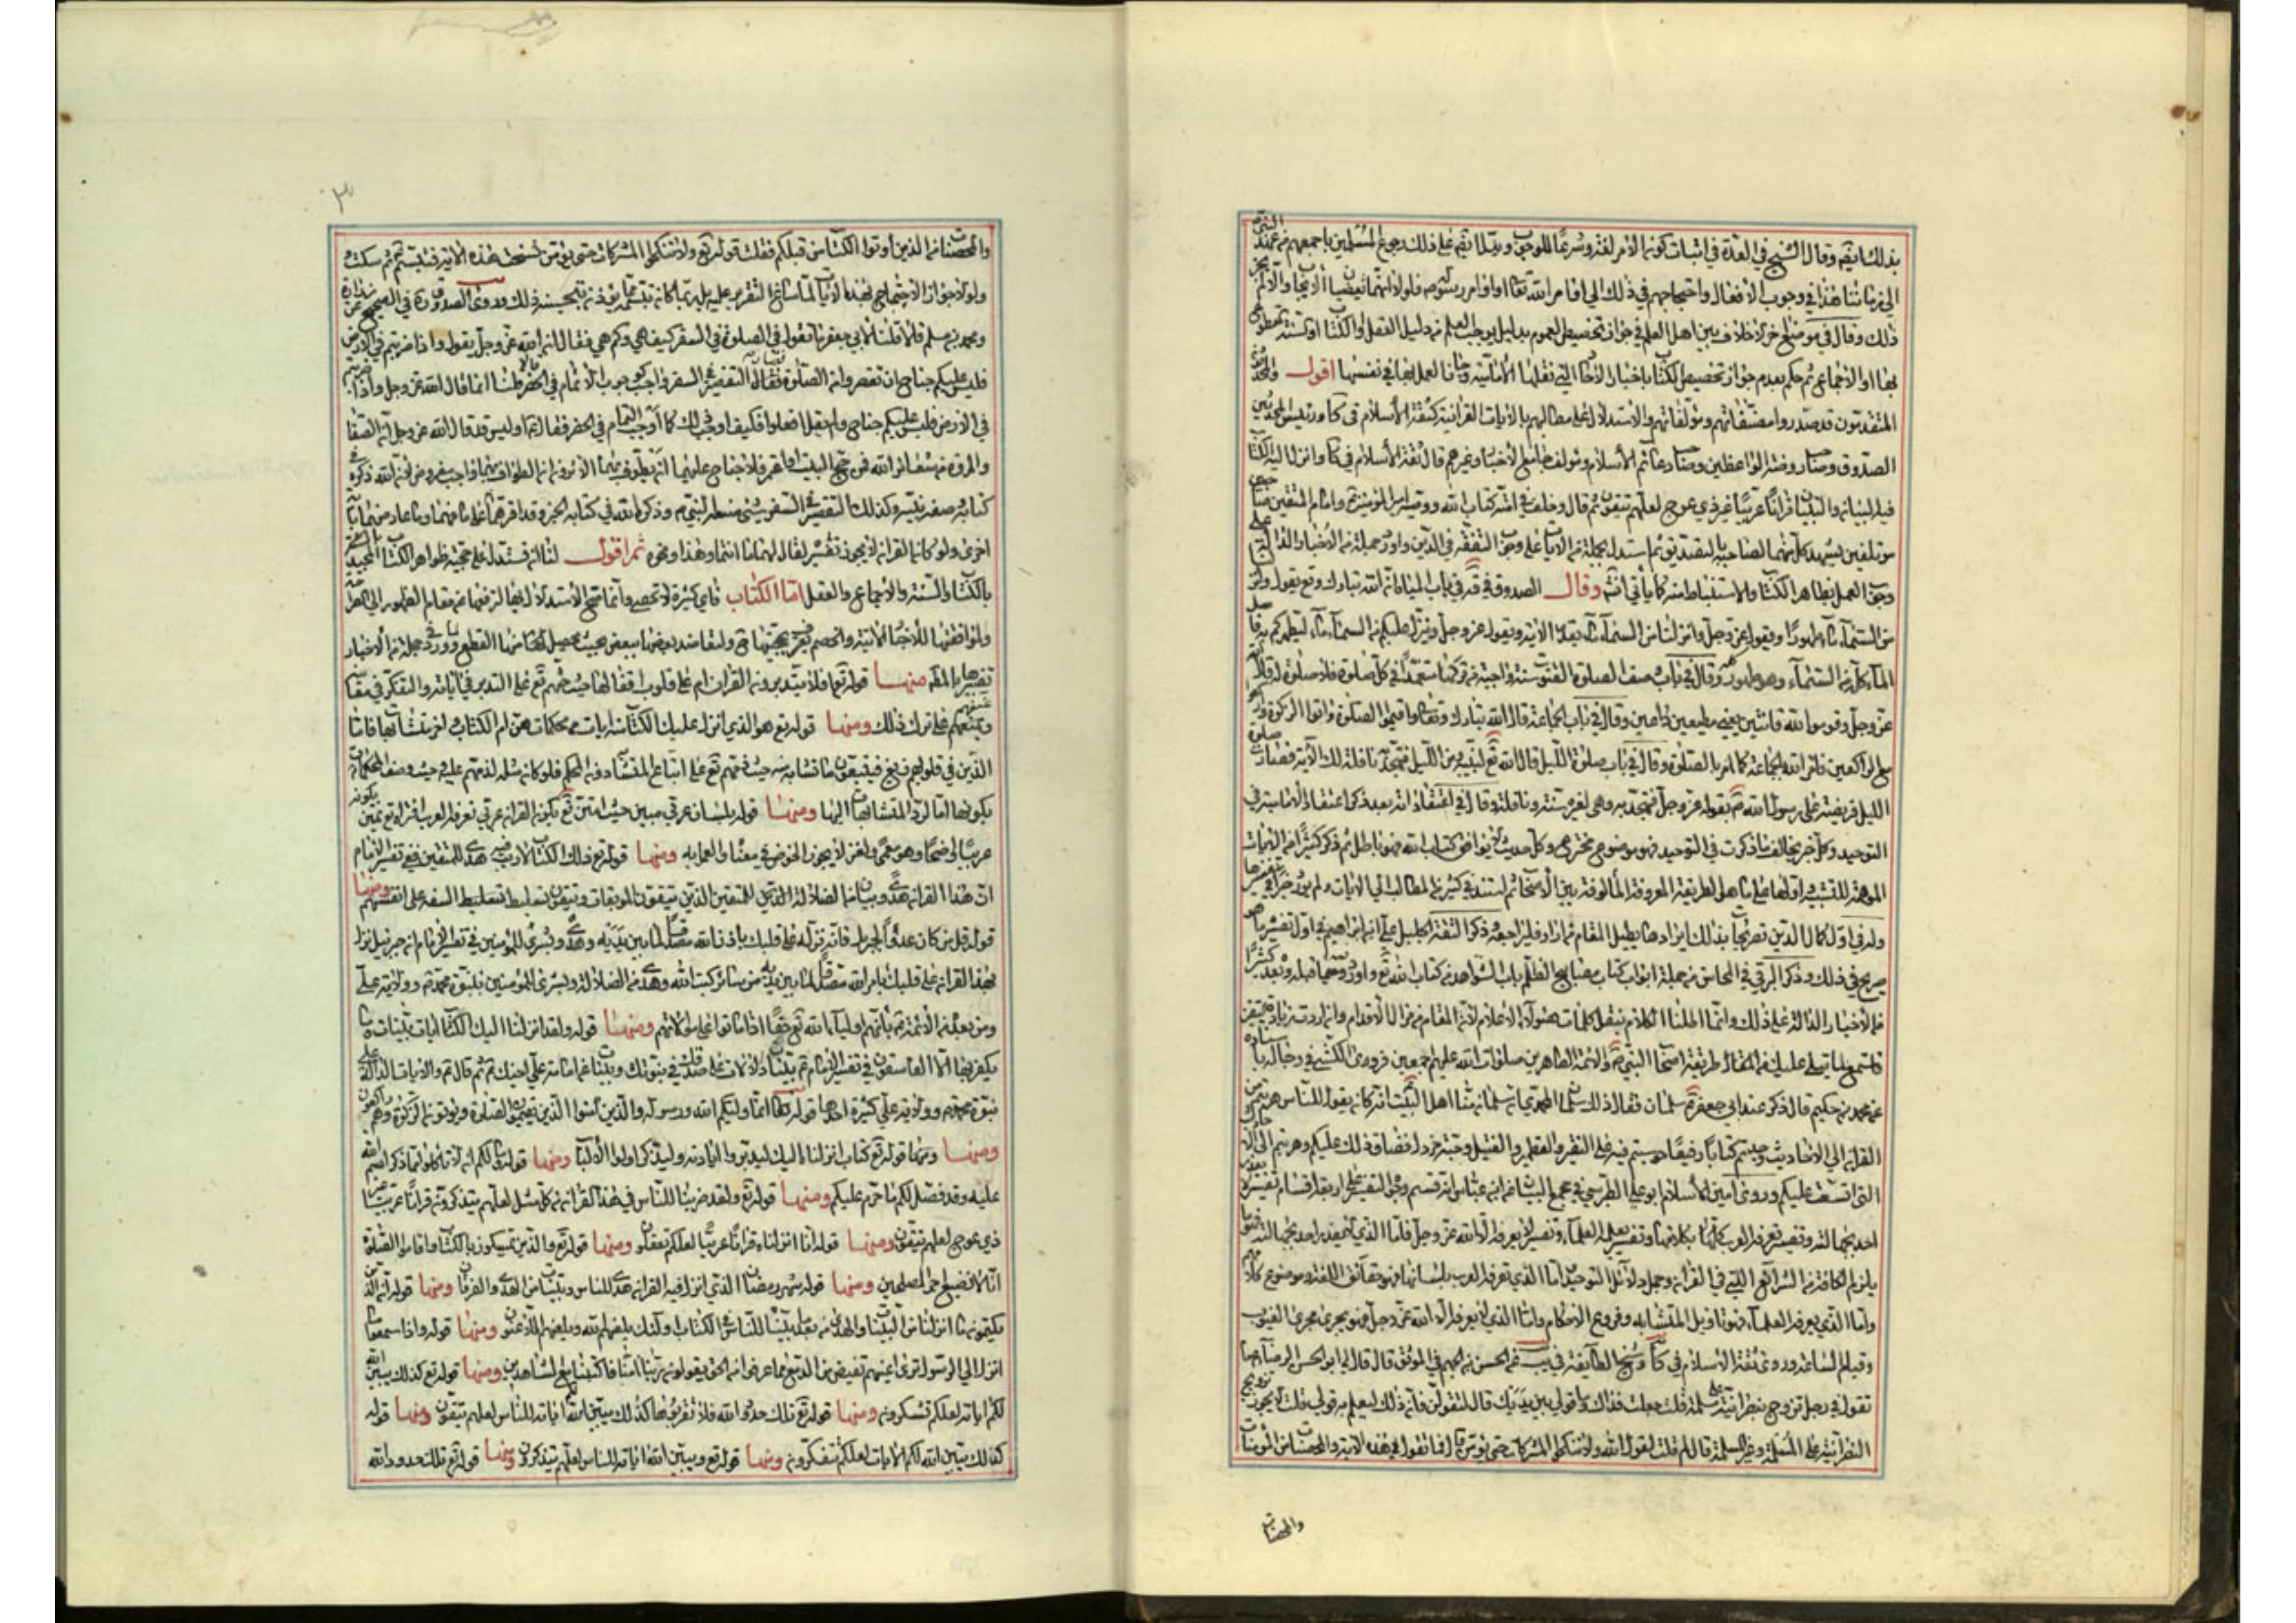 بذلك ايضا وقال الشيخ في العدة في اثبات كون الامر لغة وشرعا للوجوب ويدل ايضا على ذلك رجوع المسلمين باجمعهم من عهد النبي ص
الى زماننا هذا في وجوب الافعال واحتجاجهم في ذلك الى اوامر الله تعا واوامر رسوله ص فلولا انهما يقتضيان الايجاب والا لم يجز
ذلك وقال في موضع اخر لا خلاف بين اهل العلم في جواز تخصيص العموم بدليل يوجب العلم من دليل العقل والكتاب او السنة المقطوع
بها او الاجماع ثم حكم بعدم جواز تخصيص الكتاب باخبار الاحاد التي نقلها الامامية وجاز العمل بها في نفسها اقول
المتقدمون قد صدروا مصنفاتهم ومؤلفاتهم والاستدلال على مطالبهم بالايات القرانية كثقة الاسلام في كا ورئيس المحدثين
الصدوق وصاحب روضة الواعظين وصاحب دعائم الاسلام ومؤلف جامع الاخبار وغيرهم قال ثقة الاسلام في كا وانزل اليه الكتاب
فيه البيان والتبيان قرانا عربيا غير ذي عوج لعلهم يتقون ثم قال وخلف في امته كتاب الله ووصيه امير المؤمنين وامام المتقين صاحبين
مؤتلفين يشهد كل منهما لصاحبه بالتصديق ثم استدل بجملة من الايات على وجوب التفقه في الدين واورد جملة من الاخبار الدالة على
وجوب العمل بظاهر الكتاب والاستنباط منه كما يأتي انشم وقال الصدوق في يه في باب المياه ان الله تبارك وتع يقول وانزلنا
من السماء ماء طهورا ويقول عز وجل وانزلنا من السماء ماء بقدر الاية ويقول عز وجل وينزل عليكم من السماء ماء ليطهركم به فاصل
الماء كله من السماء وهو طهور وقال في باب وصف الصلوة القنوت سنة واجبة من تركها متعمدا في كل صلوة فلا صلوة له قال الله
عز وجل وقوموا لله قانتين يعني مطيعين داعين وقال في باب الجماعة قال الله تبارك وتعا واقيموا الصلوة واتوا الزكوة واركعوا
مع الراكعين فامر الله بالجماعة كما امر بالصلوة وقال في باب صلوة الليل قال الله تع لنبيه ص ومن الليل فتهجد به نافلة لك الاية فصارت صلوة
الليل فريضة على رسول الله ص بقوله عز وجل فتهجد به وهي لغيره سنة ونافلة وقال في اعتقاداته بعد ذكر اعتقاد الامامية في
التوحيد وكل خبر يخالف ما ذكرت في التوحيد فهو موضوع مخترع وكل حديث لا يوافق كتاب الله فهو باطل ثم ذكر كثيرا من الايات
الموهمة للتشبيه
وله في اول كمال الدين تصريحات بذلك ايرادها يطيل المقام فمن اراد فليراجعه وذكر الثقة الجليل علي بن ابراهيم في اول تفسيره ما هو
صريح في ذلك وذكر البرقي في المحاسن من جملة ابواب كتاب مصابيح الظلم باب الشواهد من كتاب الله تع واورد فيها
من الاخبار الدالة على ذلك وانما اطلنا الكلام بنقل كلمات هؤلاء الاعلام لان المقام من مزال الاقدام وان اردت زيادة تحقيق
فاستمع لما يتلى عليك من المقال طريقة اصحاب النبي ص والائمة الطاهرين صلوات الله عليهم اجمعين فروى الكشي في رجاله باسناده
عن محمد بن حكيم قال ذكر عند ابي جعفر ع سلمان فقال ذلك سلمان المحمدي ان سلمان منا اهل البيت انه كان يقول للناس هربتم من
القران الى الاحاديث وجدتم كتابا رقيقا حوسبتم فيه على النقير والقطمير والفتيل وحبة خردل فضاق ذلك عليكم وهربتم الى الاحاديث
التي اتسعت عليكم وروى امين الاسلام ابو علي الطبرسي في مجمع البيان عن ابن عباس انه قسم وجوه التفسير على اربعة اقسام تفسير لا يعذر
احد بجهالته وتفسير تعرفه العرب بكلامها وتفسير يعلمه العلماء وتفسير لا يعرفه الا الله عز وجل فاما الذي لا يعذر احد بجهالته فهو ما
يلزم الكافة من الشرائع التي في القران وجمل دلائل التوحيد واما الذي تعرفه العرب بلسانها فهو حقائق اللغة وموضوع كلامهم
واما الذي يعرفه العلماء فهو تاويل المتشابه وفروع الاحكام واما الذي لا يعرفه الا الله عز وجل فهو يجري مجرى الغيوب
وقيام الساعة وروى ثقة الاسلام في كا وشيخ الطايفة في يب عن الحسن بن الجهم في الموثق قال قال لي ابو الحسن الرضا ع ما
تقول في رجل تزوج نصرانية على مسلمة قلت جعلت فداك وما قولي بين يديك قال لتقولن فان ذلك ليعلم به قولي قلت لا يجوز تزويج
النصرانية على المسلمة وغير المسلمة قال لم قلت لقول الله ولا تنكحوا المشركات حتى يؤمن قال فما تقول في هذه الاية والمحصنات من المؤمنات
والمحصنات
٣
والمحصنات من الذين اوتوا الكتاب من قبلكم فقلت قوله تع ولا تنكحوا المشركات حتى يؤمن نسخت هذه الاية فتبسم ثم سكت
ولولا جواز الاحتجاج بهذه الايات لما ساغ التقرير عليه بل ربما كان تبسمه ع يؤذن بتحسينه ذلك وروى الصدوق ره في الصحيح عن زرارة
ومحمد بن مسلم قالا قلنا لابي جعفر ع ما تقول في الصلوة في السفر كيف هي وكم هي فقال ان الله عز وجل يقول واذا ضربتم في الارض
فليس عليكم جناح ان تقصروا من الصلوة فصار التقصير في السفر واجب كوجوب الاتمام في الحضر قالا قلنا انما قال الله عز وجل واذا ضربتم
في الارض فليس عليكم جناح ولم يقل افعلوا فكيف اوجب ذلك كما اوجب التمام في الحضر فقال ع اوليس قد قال الله عز وجل ان الصفا
والمروة من شعائر الله فمن حج البيت او اعتمر فلا جناح عليه ان يطوف بهما الا ترون ان الطواف بهما واجب مفروض لان الله ذكره في
كتابه وصنعه نبيه وكذلك التقصير في السفر شيء صنعه النبي ص وذكره الله في كتابه الخبر
اخرى ولو كان القران لا يجوز تفسيره لقال لهما ما انتما وهذا ونحوه ثم اقول لنا ان نستدل على حجية ظواهر الكتاب المجيد
بالكتاب والسنة والاجماع والعقل اما الكتاب فاي كثيرة لا تحصى وانما صح الاستدلال بها
ولموافقتها للاخبار الاتية
تفسيرها بالمقام منها قوله تعا افلا يتدبرون القران ام على قلوب اقفالها حيث ذمهم تع على ترك التدبر في اياته والتفكر في
على ترك ذلك ومنها قوله تع هو الذي انزل عليك الكتاب منه ايات محكمات هن ام الكتاب واخر متشابهات فاما
الذين في قلوبهم زيغ فيتبعون ما تشابه منه حيث ذمهم تع على اتباع المتشابه دون المحكم فلو كان مثله لذمهم عليه وحيث وصف المحكمات
بكونها اما لرد المتشابهات اليها ومنها قوله بلسان عربي مبين حيث امتن تع بكون القران عربي تعرفه العرب
عربيا واضحا وهو معمى ولغز لا يجوز الخوض في معناه والعمل به ومنها قوله تع ذلك الكتاب لا ريب فيه هدى للمتقين ففي تفسير الامام
ان هذا القران هدى وبيان من الضلالة للمتقين الذين يتقون الموبقات ويتقون تسليط السفه على انفسهم ومنها
قوله قل من كان عدوا لجبريل فانه نزله على قلبك باذن الله مصدقا لما بين يديه وهدى وبشرى للمؤمنين في تفسير الامام ان جبرئيل نزل
بهذا القران على قلبك بامر الله مصدقا لما بين يديه من سائر كتب الله وهدى من الضلالة وبشرى للمؤمنين بنبوة محمد ص وولاية علي
ومن بعده من الائمة بانهم اولياء الله حقا اذا ماتوا على موالاتهم ومنها قوله ولقد انزلنا اليك ايات بينات وما
يكفر بها الا الفاسقون في تفسير الامام ع بينات دالات على صدقك في نبوتك ومبينات عن امامة علي اخيك ثم قال ع والايات الدالة على
نبوة محمد ص وولاية علي كثيرة احدها قوله تعا انما وليكم الله ورسوله والذين امنوا الذين يقيمون الصلوة ويؤتون الزكوة وهم راكعون
ومنها قوله تع كتاب انزلناه اليك ليدبروا اياته وليتذكر اولوا الالباب ومنها قوله وما لكم ان لا تاكلوا مما ذكر اسم الله
عليه وقد فصل لكم ما حرم عليكم ومنها قوله تع ولقد ضربنا للناس في هذا القران من كل مثل لعلهم يتذكرون قرانا عربيا غير
ذي عوج لعلهم يتقون ومنها قوله انا انزلناه قرانا عربيا لعلكم تعقلون ومنها قوله تع والذين يمسكون بالكتاب واقاموا الصلوة
انا لا نضيع اجر المصلحين ومنها قوله شهر رمضان الذي انزل فيه القران هدى للناس وبينات من الهدى والفرقان ومنها قوله ان الذين
يكتمون ما انزلنا من البينات والهدى من بعد ما بيناه للناس في الكتاب اولئك يلعنهم الله ويلعنهم اللاعنون ومنها قوله واذا سمعوا ما
انزل الى الرسول ترى اعينهم تفيض من الدمع مما عرفوا من الحق يقولون ربنا امنا فاكتبنا مع الشاهدين ومنها قوله تع كذلك يبين الله
لكم اياته لعلكم تشكرون ومنها قوله تع تلك حدود الله فلا تقربوها كذلك يبين الله اياته للناس لعلهم يتقون ومنها قوله
كذلك يبين الله لكم الايات لعلكم تتفكرون ومنها قوله تع ويبين الله اياته للناس لعلهم يتذكرون ومنها قوله تع تلك حدود الله